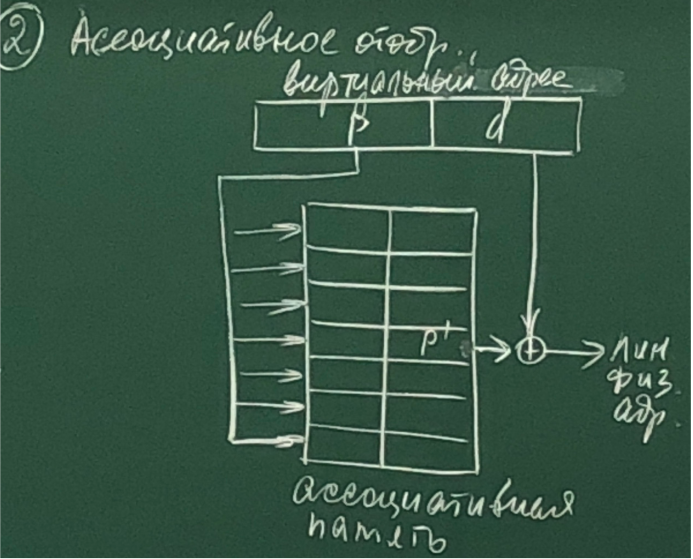 2) Ассоциативное отобр..
виртуальный адрес
p d
p'
+
лин
физ.
адр.
ассоциативная
память